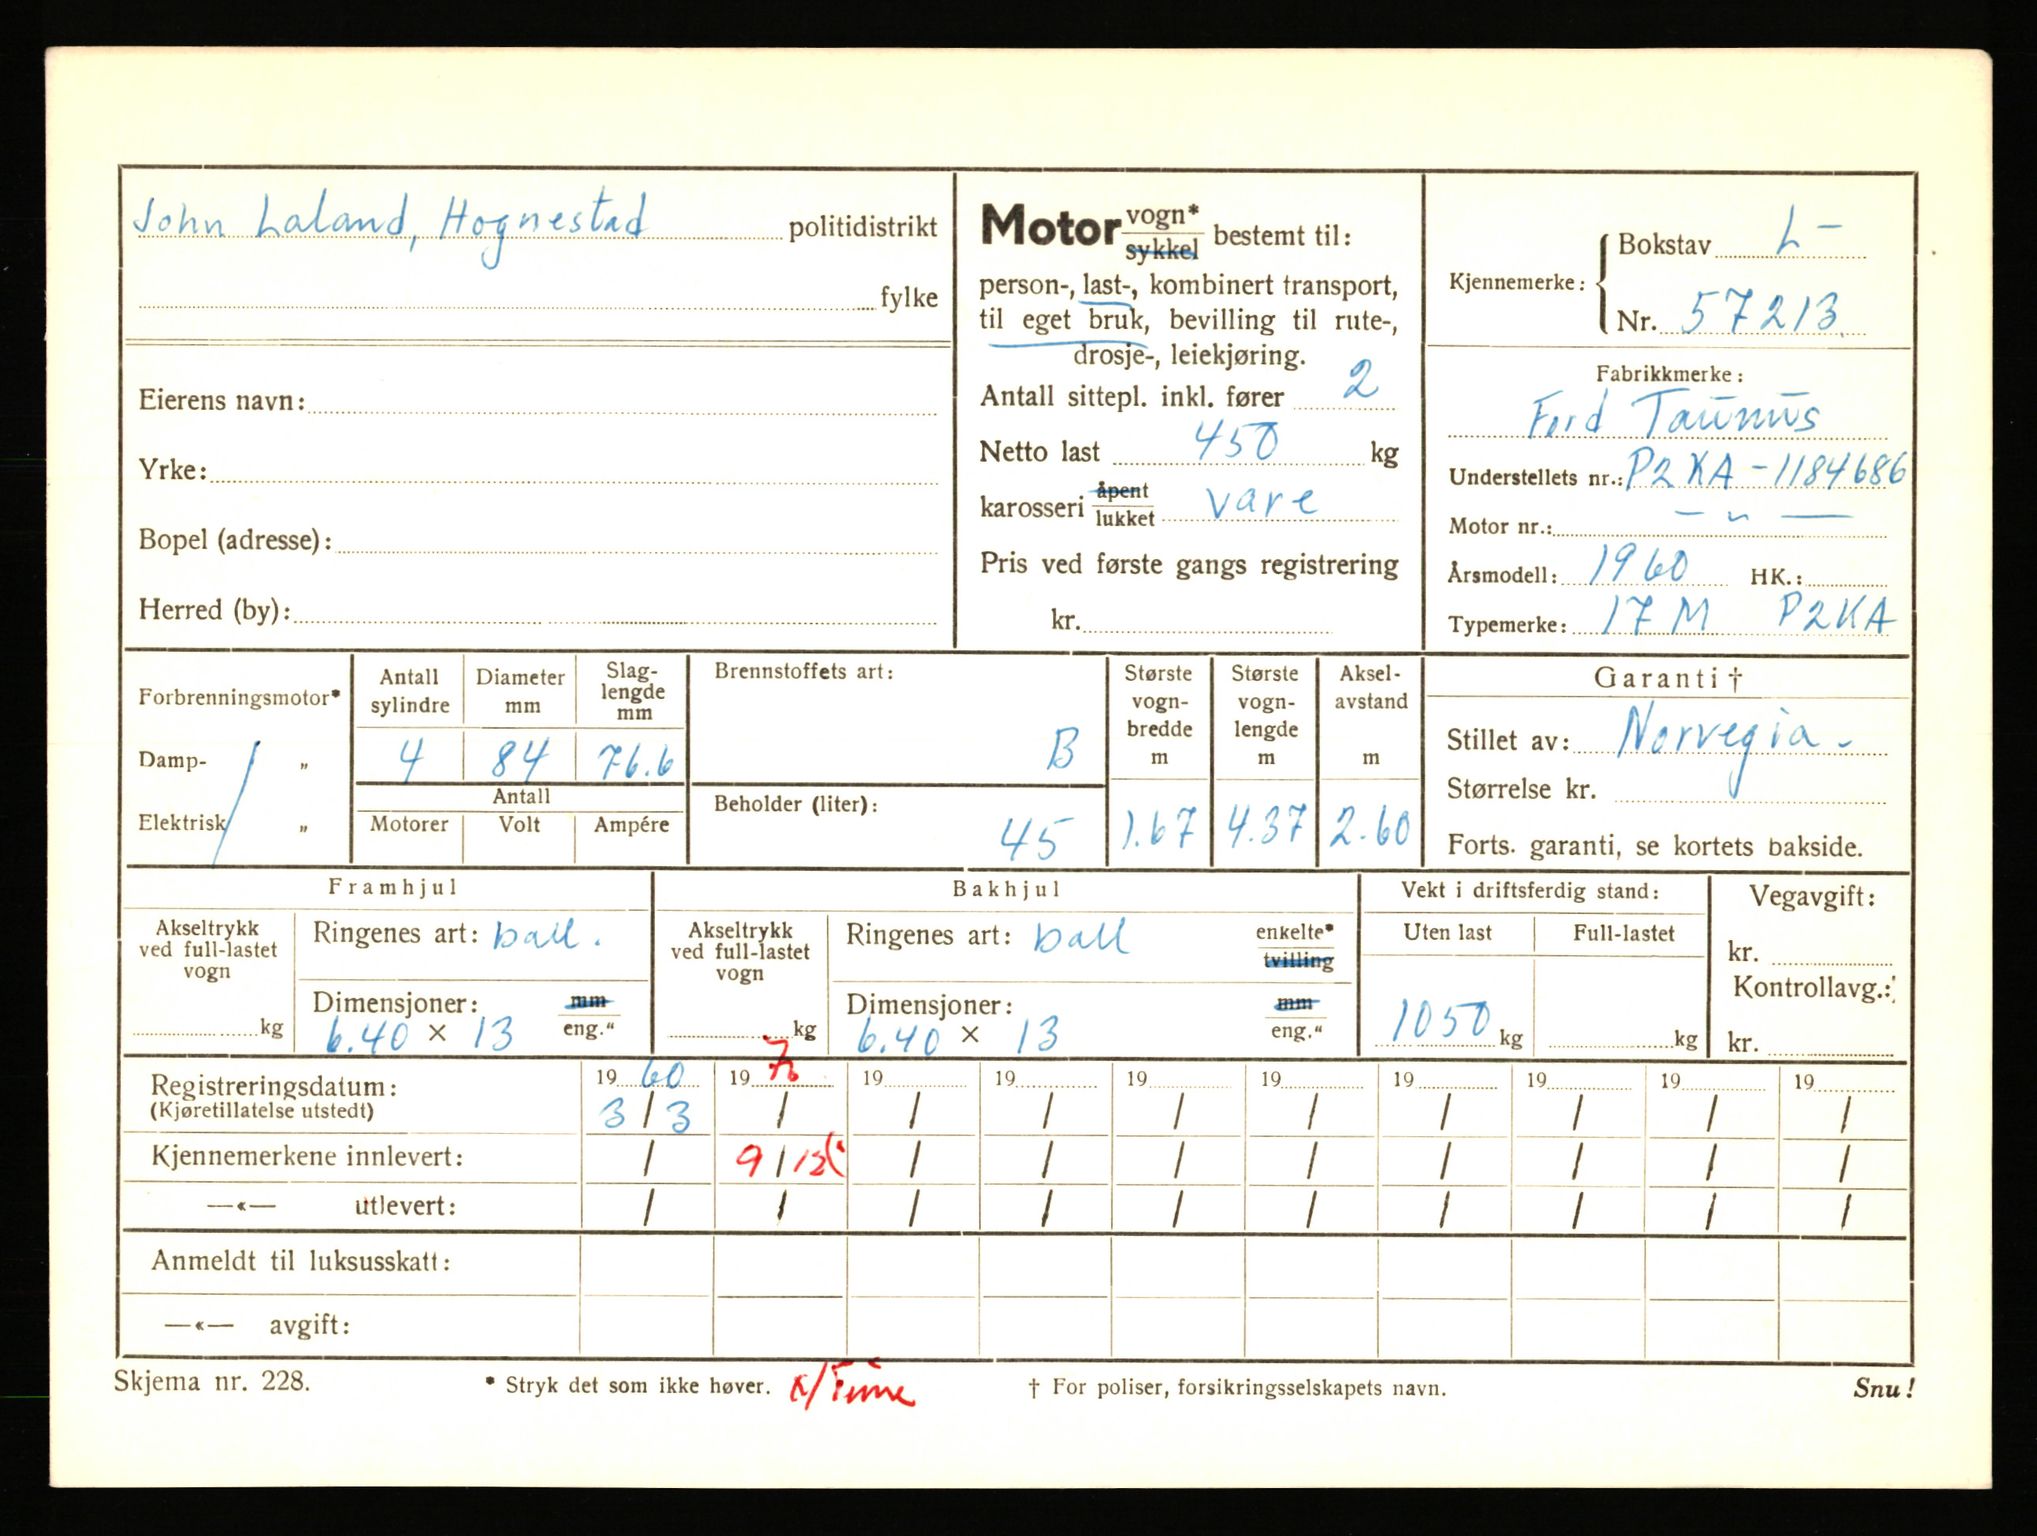 John Laland, Hognestad politidistrikt
fylke
Eierens navn:
Yrke:
Bopel (adresse):
Herred (by):
Motor vogn* sykkel bestemt til:
person-, last-, kombinert transport,
til eget bruk, bevilling til rute-,
drosje-, leiekjøring.
Antall sittepl. inkl. fører 2
Netto last 450 kg
karosseri åpent lukket vare
Pris ved første gangs registrering
kr.
Kjennemerke: Bokstav L-
Nr. 57213
Fabrikkmerke:
Ford Taunus
Understellets nr.: P2KA-1184686
Motor nr.: — " —
Årsmodell: 1960 HK.:
Typemerke: 17 M P2KA
Forbrenningsmotor*
Damp- „
Elektrisk „
Antall sylindre
Diameter mm
Slag-
lengde
mm
4 84 76.6
Antall
Motorer Volt Ampére
Brennstoffets art:
B
Beholder (liter):
45
Største
vogn-
bredde
m
1.67
Største
vogn-
lengde
m
4.37
Aksel-
avstand
m
2.60
Garanti †
Stillet av: Norvegia -
Størrelse kr.
Forts. garanti, se kortets bakside.
Framhjul
Akseltrykk
ved full-lastet
vogn
kg
Ringenes art: ball.
Dimensjoner: mm
6.40 × 13 eng."
Bakhjul
Akseltrykk
ved full-lastet
vogn
kg
Ringenes art: ball enkelte* tvilling
Dimensjoner: mm
6.40 × 13 eng."
Vekt i driftsferdig stand:
Uten last Full-lastet
1050 kg kg
Vegavgift:
kr.
Kontrollavg.:
kr.
Registreringsdatum: 19 60 19 19 19 19 19 19 19 19 19
(Kjøretillatelse utstedt) 3 / 3 / / / / / / / / /
Kjennemerkene innlevert: / 9 / 12 / / / / / / / /
—«— utlevert: / / / / / / / / / /
Anmeldt til luksusskatt:
—«— avgift:
Skjema nr. 228. * Stryk det som ikke høver. † For poliser, forsikringsselskapets navn. Snu!